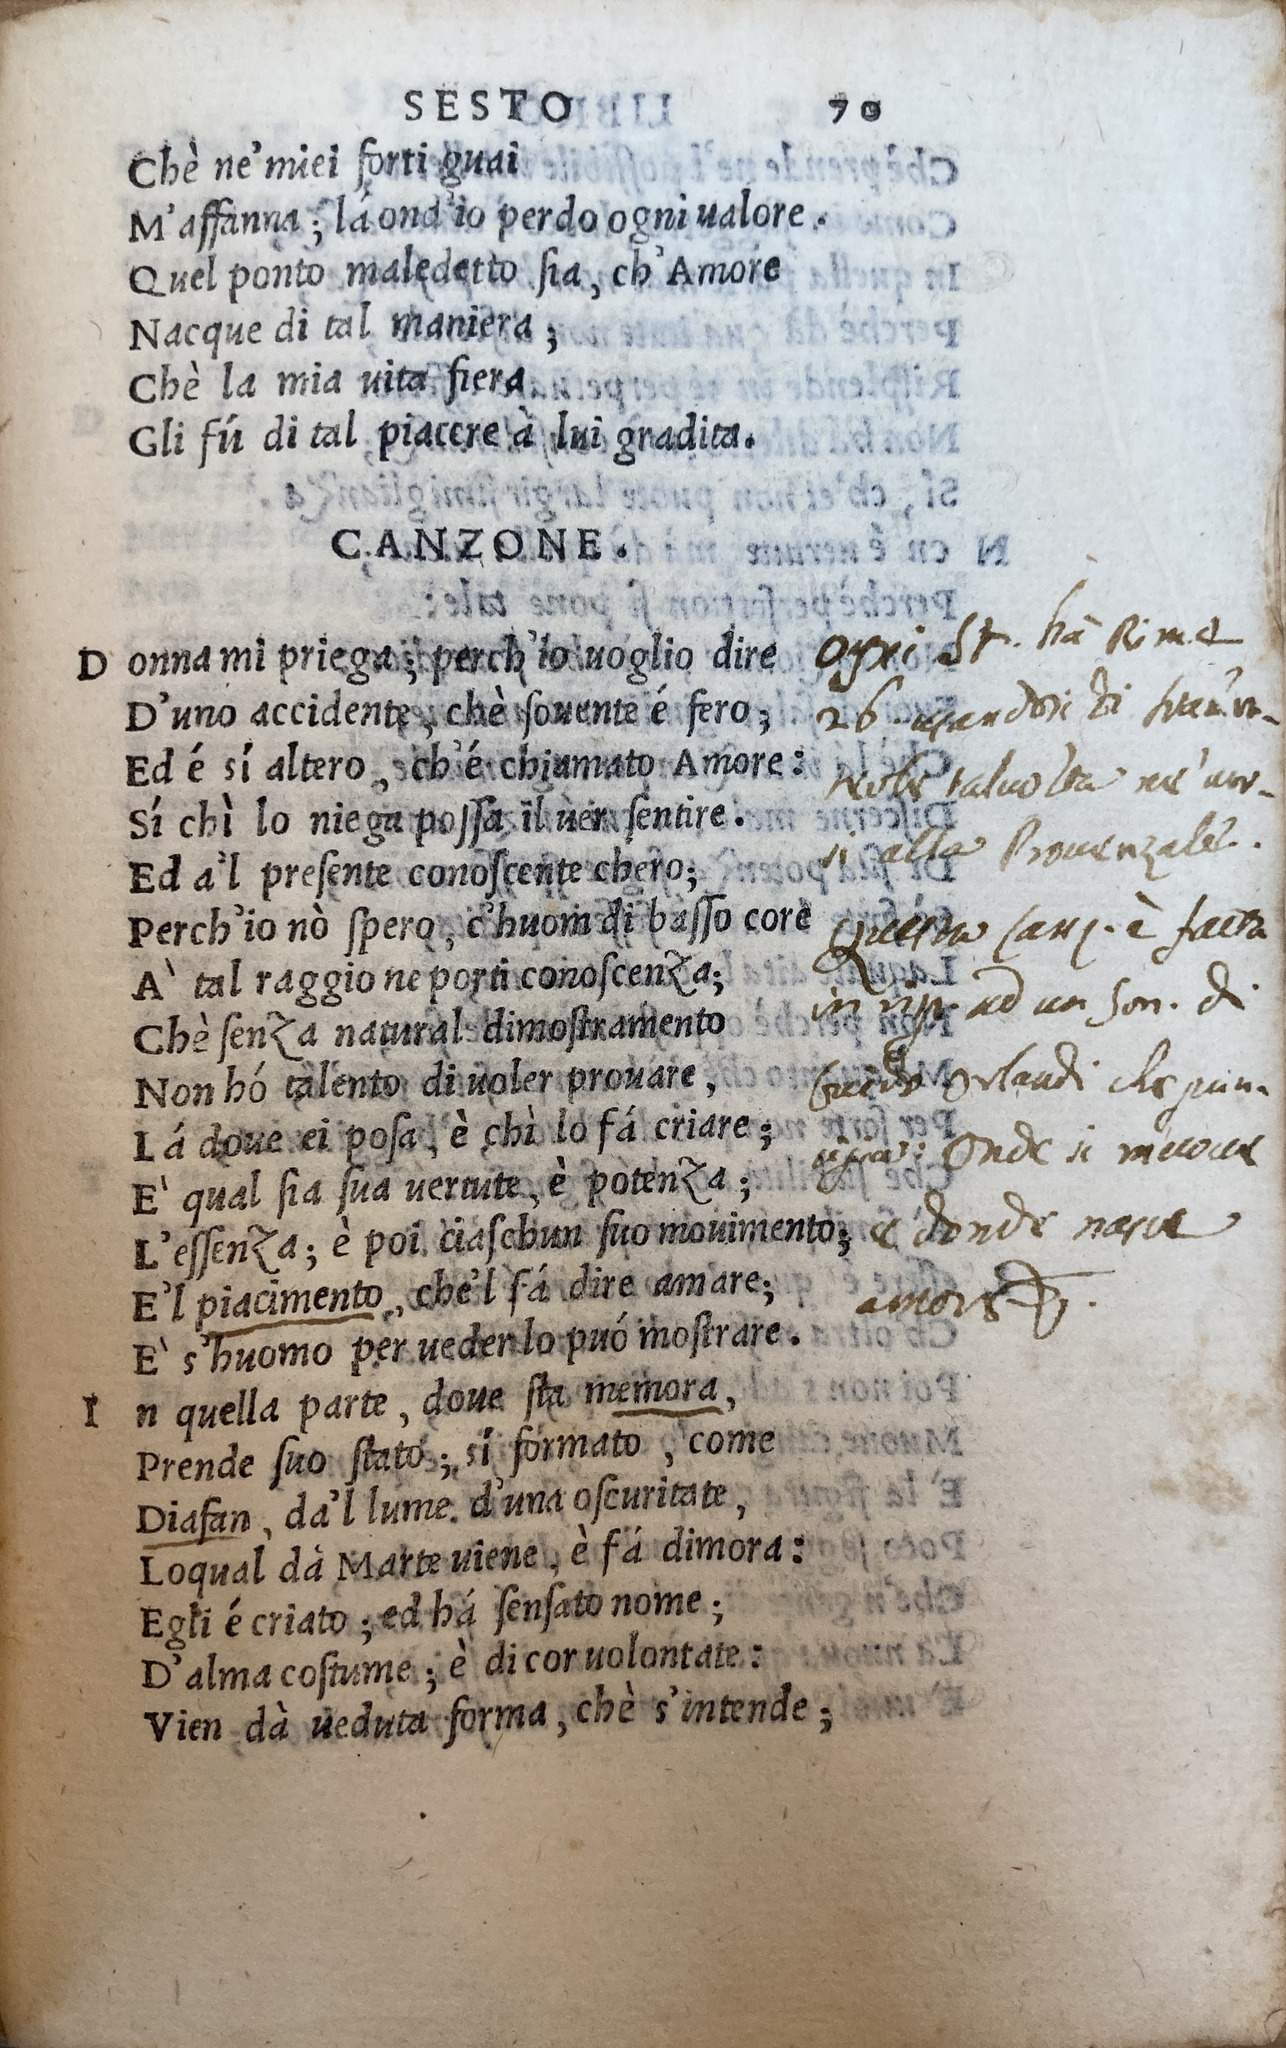 SESTO 70
Chè ne'miei forti guai
M'affanna; lá ond'io perdo ogni ualore.
Quel ponto maledetto sia, ch'Amore
Nacque di tal maniera;
Chè la mia uita fiera
Gli fú di tal piacere à lui gradita.
CANZONE.
Donna mi priega; perch'io uoglio dire
D'uno accidente, chè souente é fero;
Ed é sí altero, ch'é chiamato Amore:
Sí chì lo niega possa il uer sentire.
Ed a'l presente conoscente chero;
Perch'io nò spero, c'huom di basso core
A' tal raggione porti conoscenza;
Chè senza natural dimostramento
Non hó talento di uoler prouare,
Lá doue ei posa, è chì lo fá criare;
E' qual sia sua uertute, è potenza;
L'essenza; è poi ciaschun suo mouimento;
E'l piacimento, che'l fá dire amare;
E' s'huomo per ueder lo puó mostrare.
In quella parte, doue sta memora,
Prende suo stato; sí formato, come
Diafan, da'l lume d'una oscuritate,
Loqual dà Marte uiene, è fá dimora:
Egli é criato; ed há sensato nome;
D'alma costume; è di cor uolontate:
Vien dà ueduta forma, chè s'intende;
ogni St. hà Rime
26.
talvolta ne' uer-
si alla Prouenzale.
Questa Canz. è fatta
in risp. ad un Son. di
Guido Orlandi che
Onde si muoue
e donde nasce
amore